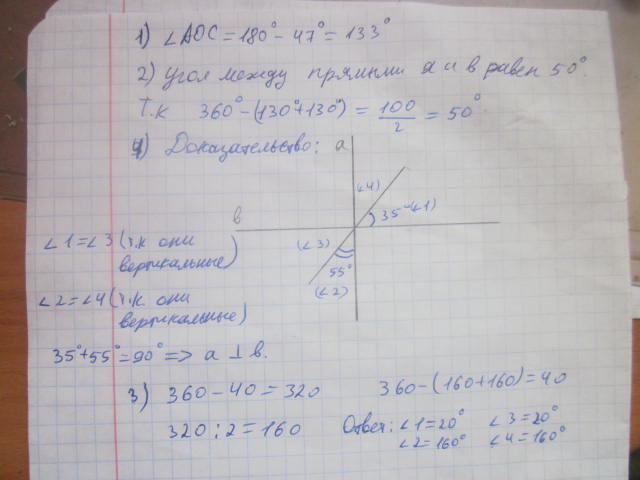 1) ∠AOC = 180° - 47° = 133°
2) Угол между прямыми a и в равен 50°.
Т.к 360° - (130°+130°) = 100/2 = 50°.
4) Доказательство: a
∠4)
35° ∠1)
в
(∠3)
55°
(∠2)
∠1=∠3 (т.к они
вертикальные)
∠2=∠4 (т.к. они
вертикальные)
35°+55°=90° => a ⊥ в.
3) 360 - 40 = 320
360-(160+160)=40
320 : 2 = 160
Ответ: ∠1=20° ∠3=20°
∠2=160° ∠4=160°